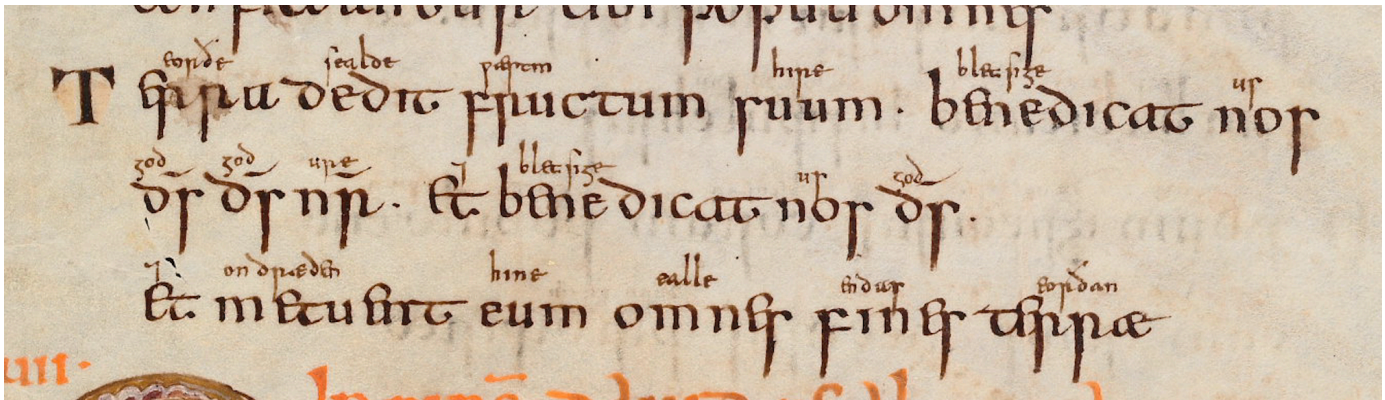 tibi populi omnes
eorðe sealde ƿæstm hire bletsige us
Terra dedit fructum suum. benedicat nos
god god ure ⁊ bletsige us god
d̄s d̄s nr̄. Et benedicat nos d̄s.
⁊ ondræden hine ealle endas eorðan
Et metuent eum omnes fines terræ